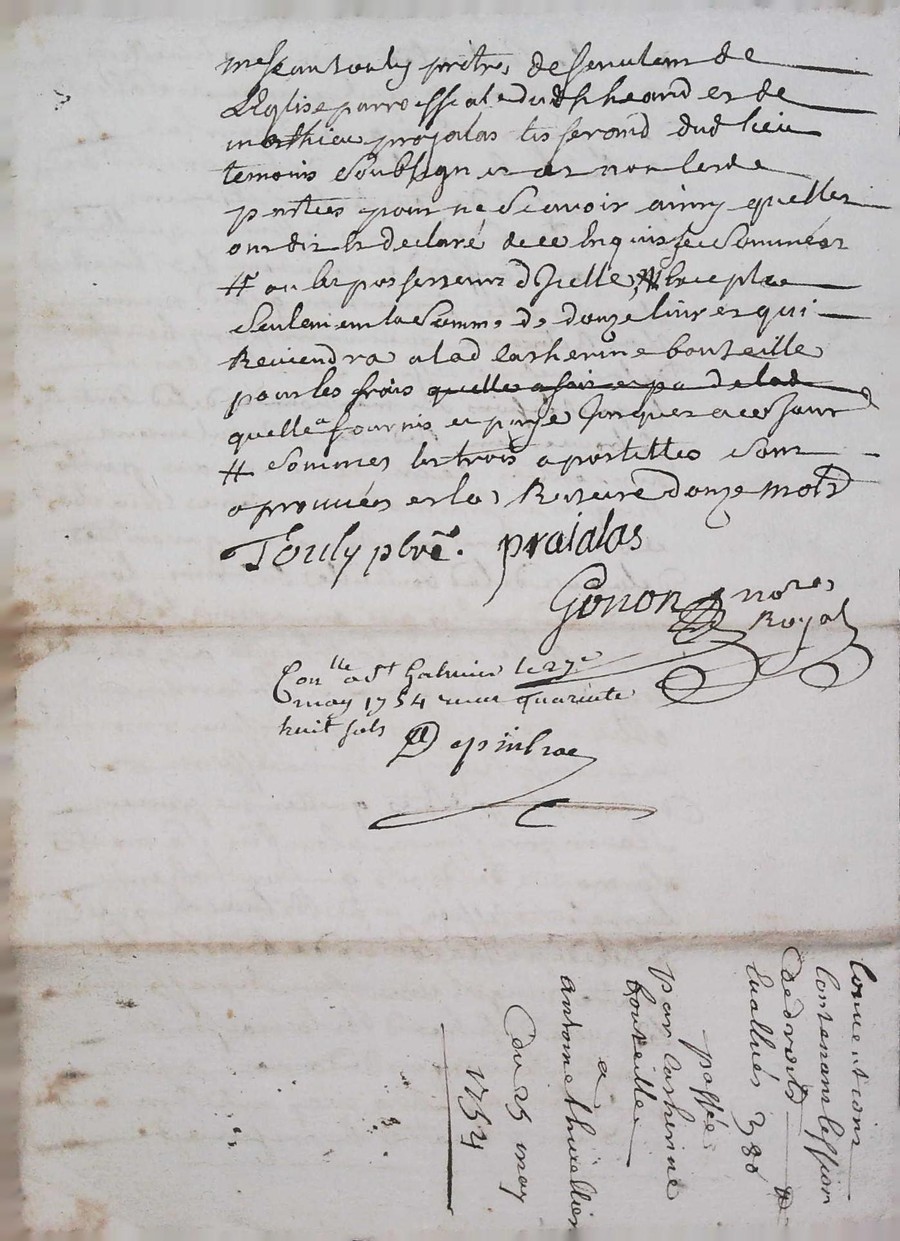 mre Jean touly prètre desservuteur de
L'Eglise parroissiale dud St heand et de
mathieu projalas tisserand dud lieu
temoins soubsignés et non les de
parties pour ne scavoir ainsy quelles
ont dit et declaré de ce enquises et sommées
# ou les possesseurs d'Jcelle, # Excepté
seulement la somme de douze livres qui
Reviendra a lad Catherine bouteille
pour les frois quelle a fait et pa de lad
quelle a fournis et payé Jusques a ce Jour
# sommes les trois apostilles sont
aprouvées et la Rature d'onze mots
Touly pbre. praialas
Gonon nore
Royal
Conlle a St Galmier le 27e
may 1754 recu quarente
huit sols
Depinhac
Convention
Contenant Cession
de droits
Evallués 380
passée
par Catherine
bouteille
a
antoine thivellier
du 25 may
1754